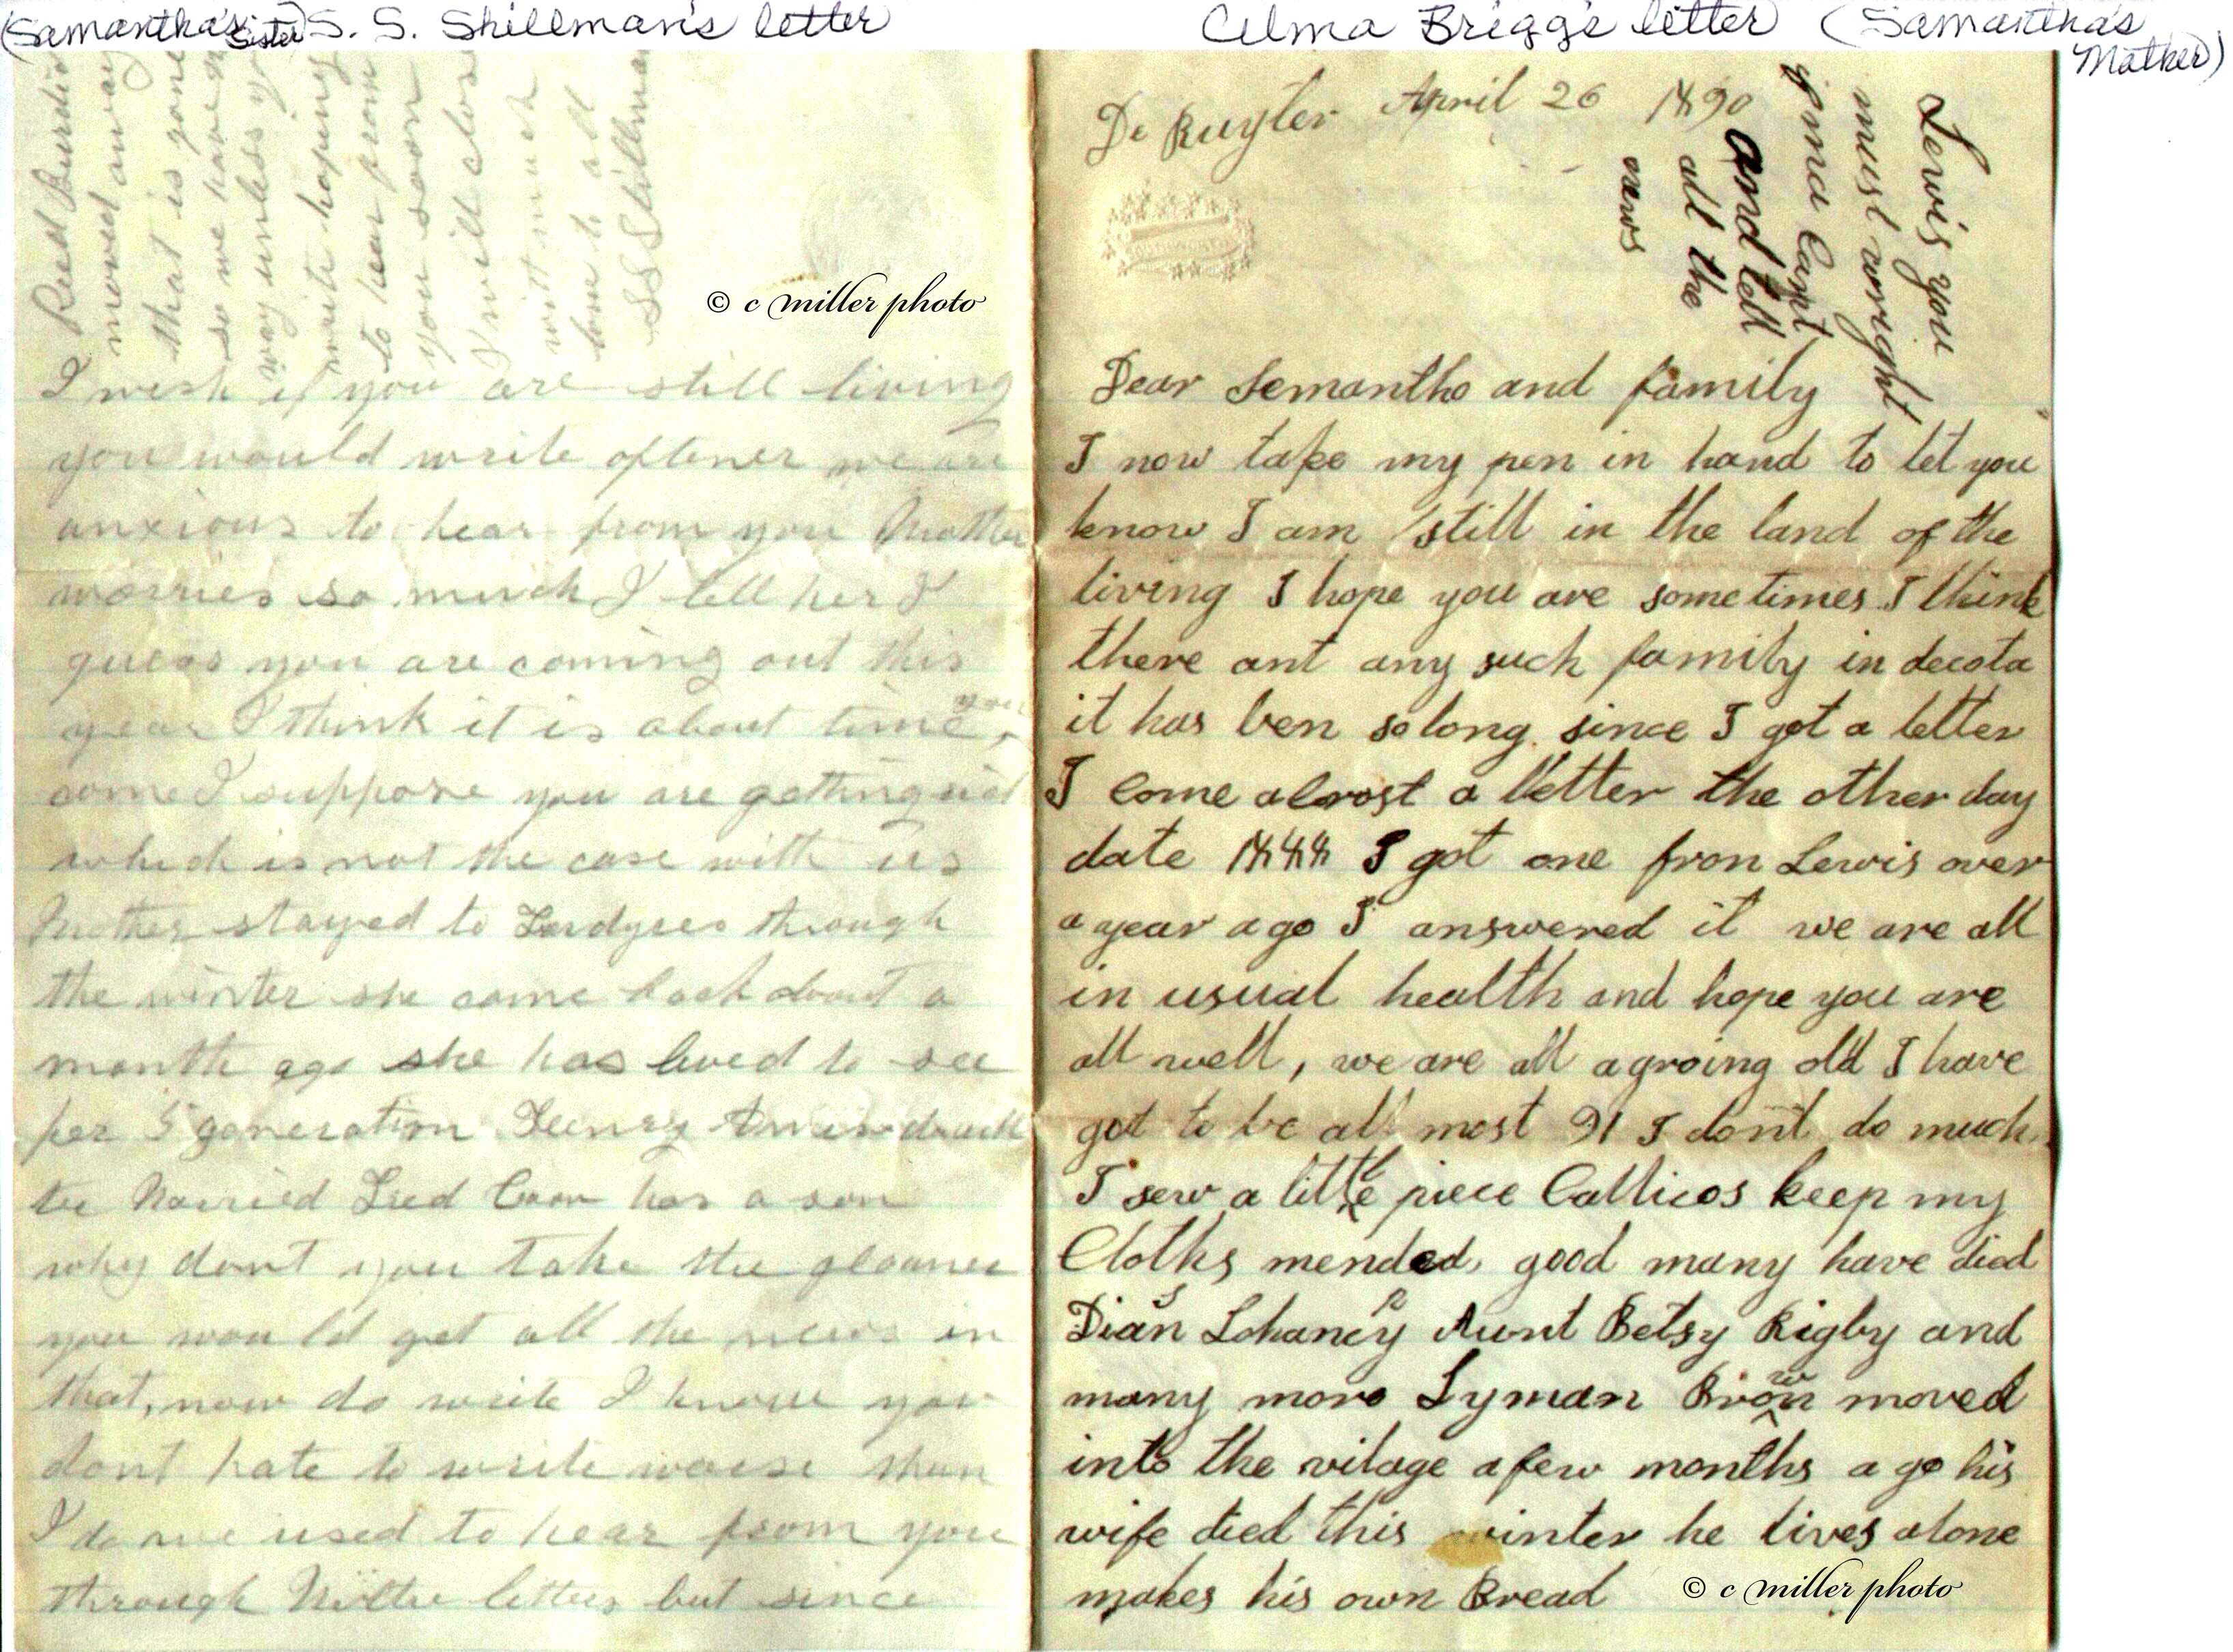 (Samantha's Sister) S. S. Stillman's letter
I wish if you are still living
you would write oftener we are
anxious to hear from you Mother
worries so much I tell her I
guess you are coming out this
year I think it is about time you
come I suppose you are getting old
which is not the case with us
Mother stayed to through
the winter she come back about a
month ago she has lived to see
her 5 generation
Married Coon has a son
why dont you take the gleaner
you would get all the news in
that, now do write I know you
dont hate to write worse than
I do we used to hear from you
through letters but since
Reed Burdick
moved away
that is gone
so we have no
way unless you
write hoping
to hear from
you soon
I will close
with much
love to all
S S Stillman
© c miller photo
Alma Brigg's letter (Samantha's
Mother)
De Ruyter April 26 1890
Lewis you
must wright
gma cant
and tell
all the
news
Dear Semantho and family
I now take my pen in hand to let you
know I am still in the land of the
living I hope you are some times I think
there ant any such family in decota
it has ben so long since I got a letter
I come alrost a letter the other day
date 1888 I got one fron Lewis over
a year ago I answered it we are all
in usual health and hope you are
all well, we are all a groing old I have
got to be all most 91 I dont do much
I sew a little piece Callicos keep my
Cloths mended, good many have died
Dian Aunt Betsy Rigby and
many more Lyman Brown moved
into the vilage a few months a go his
wife died this winter he lives alone
makes his own Bread
© c miller photo